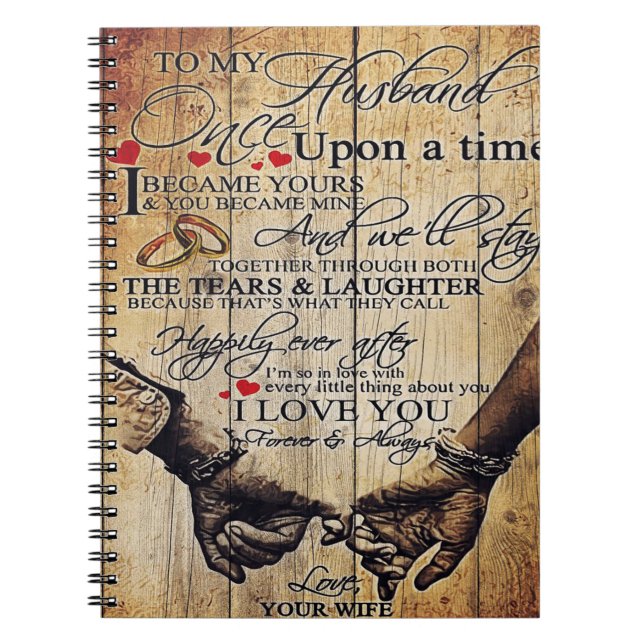 TO MY Husband
Once Upon a time
I BECAME YOURS
& YOU BECAME MINE
And we'll stay
TOGETHER THROUGH BOTH
THE TEARS & LAUGHTER
BECAUSE THAT'S WHAT THEY CALL
Happily ever after
I'm so in love with
every little thing about you
I LOVE YOU
Forever & Always
Love,
YOUR WIFE